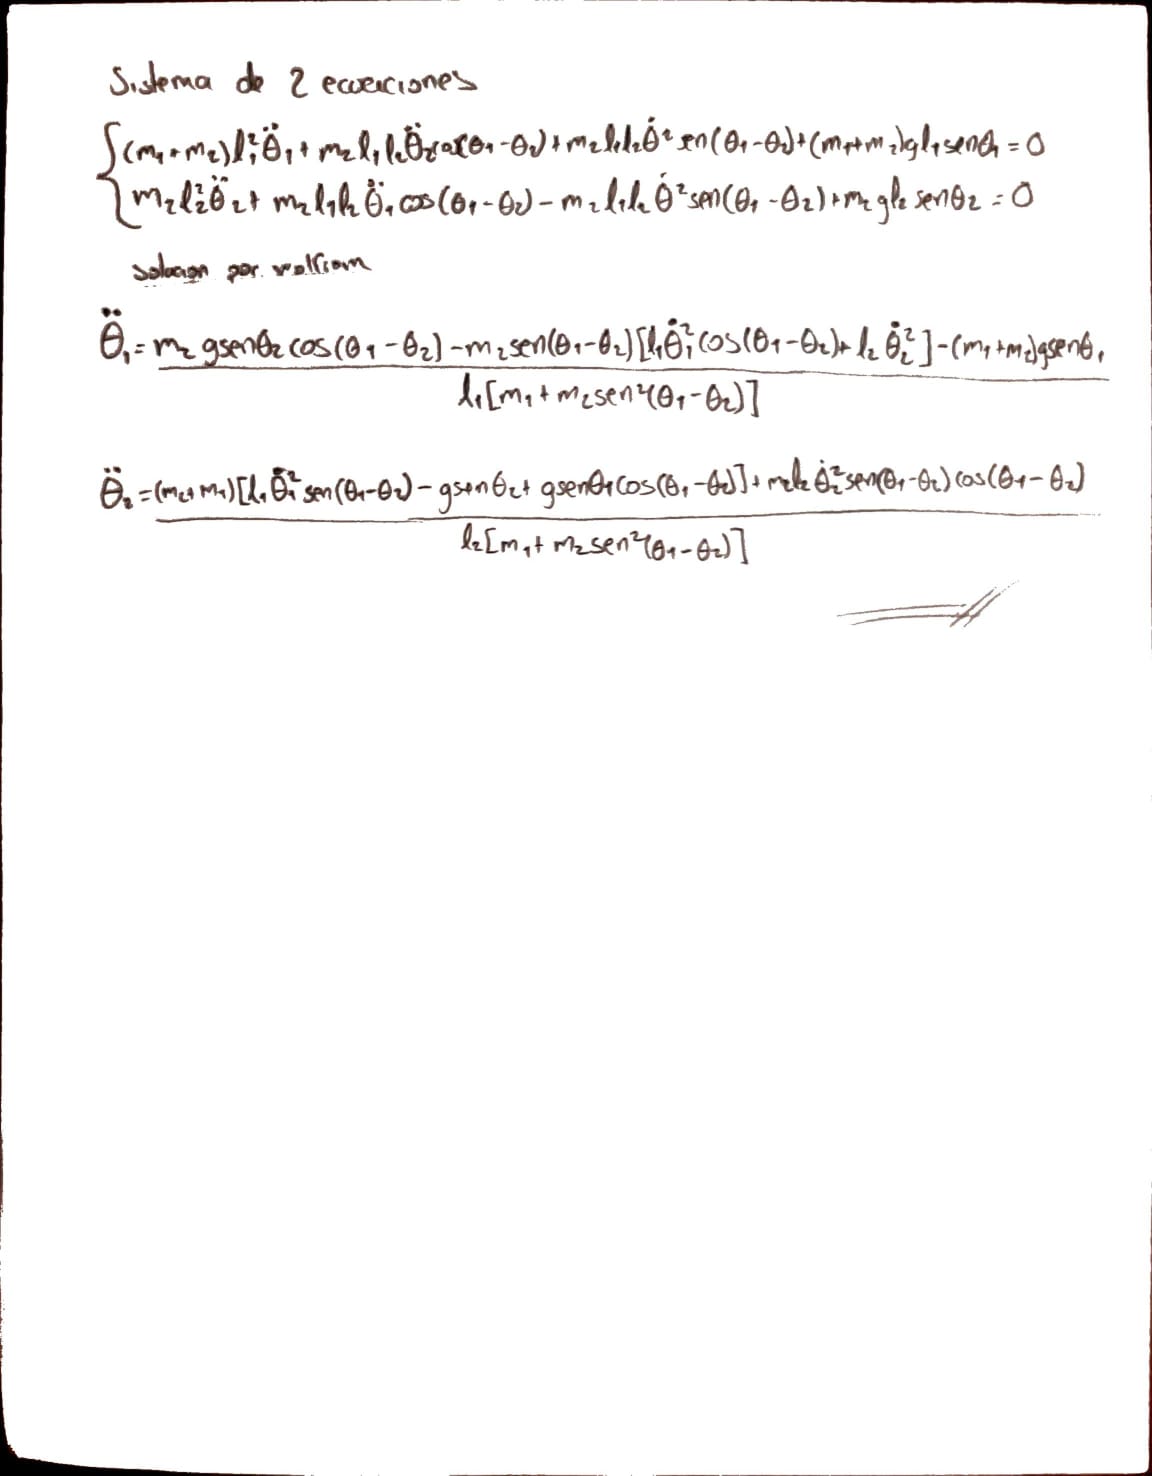 Sistema de 2 ecuaciones
(m₁+m₂)l₁²θ̈₁ + m₂l₁l₂θ̈₂cos(θ₁-θ₂) + m₂l₁l₂θ̇² sen(θ₁-θ₂) + (m₁+m₂)gl₁senθ₁ = 0
m₂l₂²θ̈₂ + m₂l₁l₂θ̈₁cos(θ₁-θ₂) - m₂l₁l₂θ̇²sen(θ₁-θ₂) + m₂gl₂senθ₂ = 0
solucion por wolfram
θ̈₁ = m₂gsenθ₂cos(θ₁-θ₂) - m₂sen(θ₁-θ₂)[l₁θ̇₁²cos(θ₁-θ₂) + l₂θ̇₂²] - (m₁+m₂)gsenθ₁
l₁[m₁ + m₂sen²(θ₁-θ₂)]
θ̈₂ = (m₂+m₁)[l₁θ̇₁²sen(θ₁-θ₂) - gsenθ₂ + gsenθ₁cos(θ₁-θ₂)] + m₂l₂θ̇₂²sen(θ₁-θ₂)cos(θ₁-θ₂)
l₂[m₁ + m₂sen²(θ₁-θ₂)]